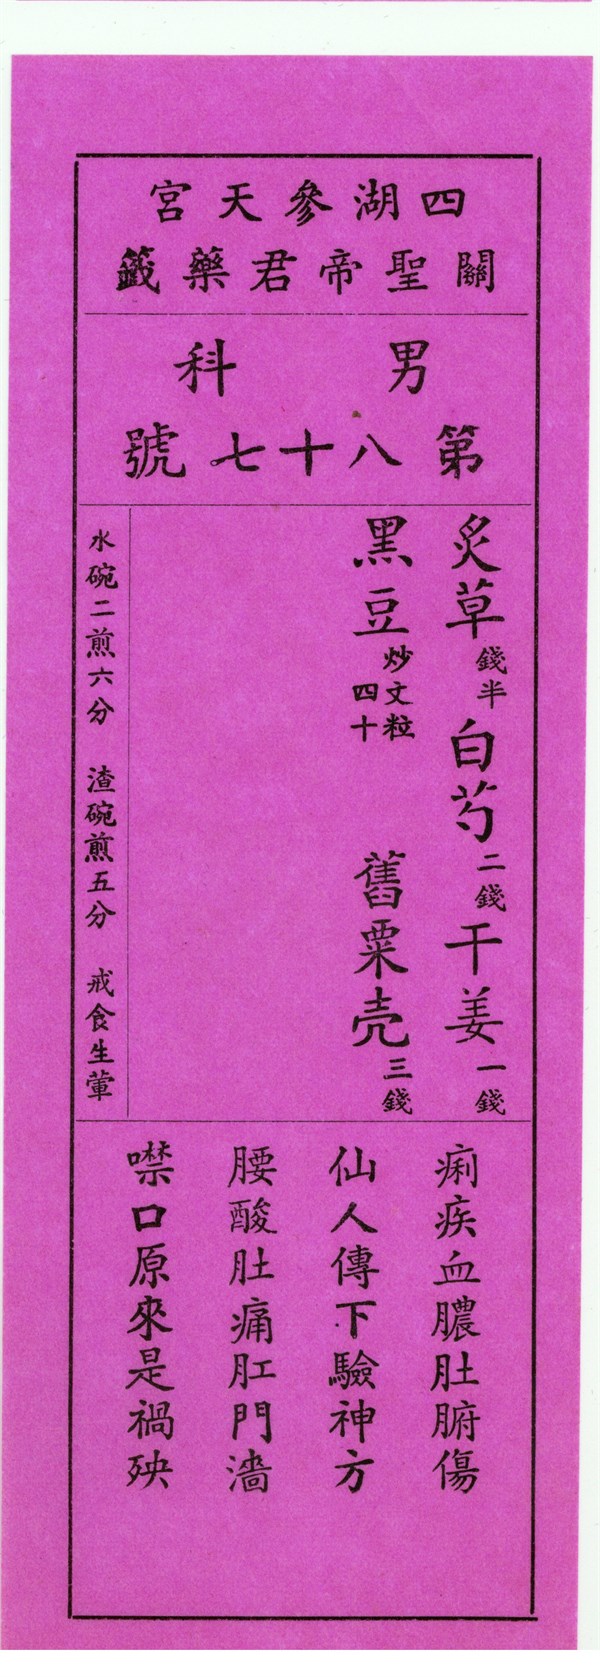 四湖參天宮
關聖帝君藥籤
男科
第八十七號
炙草錢半 白芍二錢 干姜一錢
黑豆炒文粒四十 舊粟壳三錢
水碗二煎六分 渣碗煎五分 戒食生葷
痢疾血膿肚腑傷
仙人傳下驗神方
腰酸肚痛肛門濇
噤口原來是禍殃